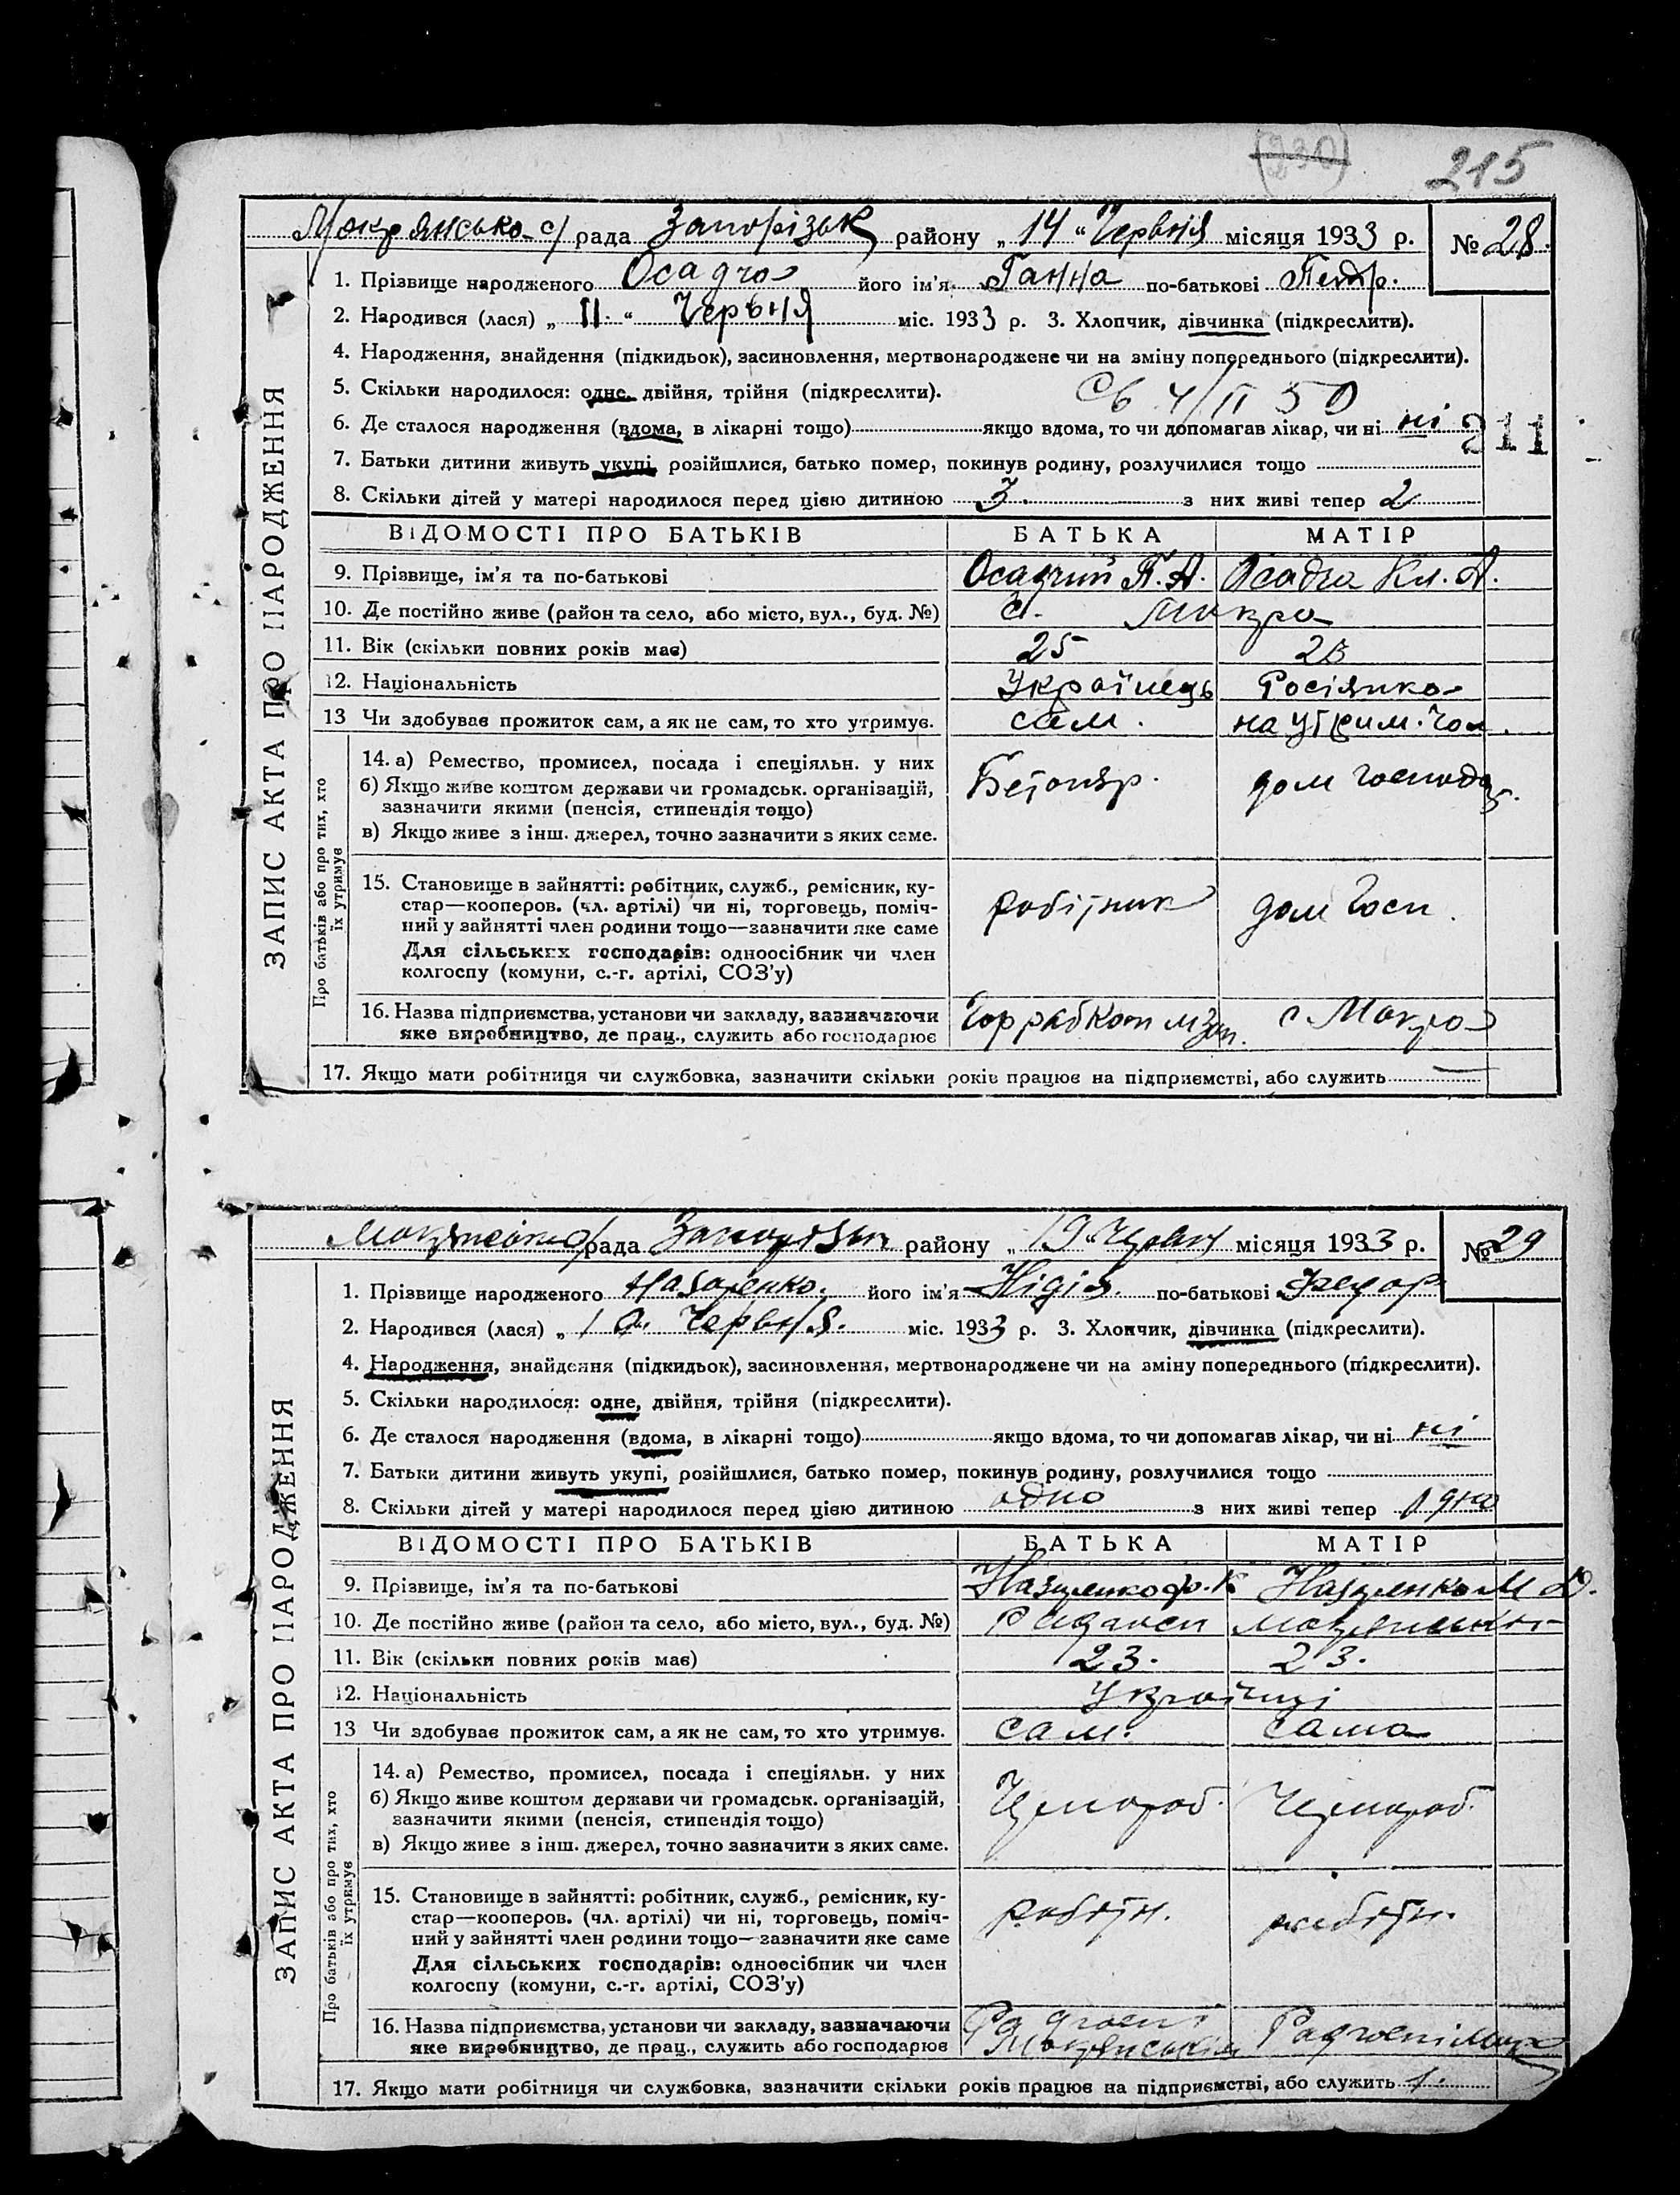 (230) 215
Мокрянсько с/ рада Запорізьк району „ 14 " Червня місяця 1933 р. № 28.
1. Прізвище народженого Осадча його ім'я Ганна по-батькові Петр.
2. Народився (лася) „ 11. " Червня міс. 1933 р. 3. Хлопчик, дівчинка (підкреслити).
4. Народження, знайдення (підкидьок), засиновлення, мертвонароджене чи на зміну попереднього (підкреслити).
5. Скільки народилося: одне, двійня, трійня (підкреслити).
Св 4/II 50
6. Де сталося народження (вдома, в лікарні тощо) якщо вдома, то чи допомагав лікар, чи ні ні
211
7. Батьки дитини живуть укупі, розійшлися, батько помер, покинув родину, розлучилися тощо
8. Скільки дітей у матері народилося перед цією дитиною 3. з них живі тепер 2
ЗАПИС АКТА ПРО НАРОДЖЕННЯ
ВІДОМОСТІ ПРО БАТЬКІВ БАТЬКА МАТІР
9. Прізвище, ім'я та по-батькові Осадчий П. А. Осадча Кл. А.
10. Де постійно живе (район та село, або місто, вул., буд. №) с. Мокра
11. Вік (скільки повних років має) 25
12. Національність Українець Росіянка
13 Чи здобуває прожиток сам, а як не сам, то хто утримує. сам. на утрим. чол.
Про батьків або про тих, хто
їх утримує
14. а) Ремество, промисел, посада і спеціяльн. у них
б) Якщо живе коштом держави чи громадськ. організацій,
зазначити якими (пенсія, стипендія тощо)
в) Якщо живе з інш. джерел, точно зазначити з яких саме.
Бетоняр. дом господар.
15. Становище в зайнятті: робітник, служб., ремісник, ку-
стар—кооперов. (чл. артілі) чи ні, торговець, поміч-
ний у зайнятті член родини тощо—зазначити яке саме
Для сільських господарів: одноосібник чи член
колгоспу (комуни, с.-г. артілі, СОЗ'у)
робітник дом госп.
16. Назва підприємства, установи чи закладу, зазначаючи
яке виробництво, де прац., служить або господарює
Горрабкоп м Зап. с. Мокра
17. Якщо мати робітниця чи службовка, зазначити скільки років працює на підприємстві, або служить —
рада району „ 19 " Червня місяця 1933 р. № 29
1. Прізвище народженого Назаренко. його ім'я Лідія. по-батькові Федор
2. Народився (лася) „ міс. 1933 р. 3. Хлопчик, дівчинка (підкреслити).
Червня.
4. Народження, знайдення (підкидьок), засиновлення, мертвонароджене чи на зміну попереднього (підкреслити).
5. Скільки народилося: одне, двійня, трійня (підкреслити).
6. Де сталося народження (вдома, в лікарні тощо) якщо вдома, то чи допомагав лікар, чи ні ні
7. Батьки дитини живуть укупі, розійшлися, батько помер, покинув родину, розлучилися тощо
8. Скільки дітей у матері народилося перед цією дитиною одно з них живі тепер одно
ЗАПИС АКТА ПРО НАРОДЖЕННЯ
ВІДОМОСТІ ПРО БАТЬКІВ БАТЬКА МАТІР
9. Прізвище, ім'я та по-батькові Назаренко Ф. К Назаренко М
10. Де постійно живе (район та село, або місто, вул., буд. №) Радгосп
11. Вік (скільки повних років має) 23. 23.
12. Національність Українці
13 Чи здобуває прожиток сам, а як не сам, то хто утримує. сам. сама
Про батьків або про тих, хто
їх утримує
14. а) Ремество, промисел, посада і спеціяльн. у них
б) Якщо живе коштом держави чи громадськ. організацій,
зазначити якими (пенсія, стипендія тощо)
в) Якщо живе з інш. джерел, точно зазначити з яких саме.
Чорнороб. Чорнороб.
15. Становище в зайнятті: робітник, служб., ремісник, ку-
стар—кооперов. (чл. артілі) чи ні, торговець, поміч-
ний у зайнятті член родини тощо—зазначити яке саме
Для сільських господарів: одноосібник чи член
колгоспу (комуни, с.-г. артілі, СОЗ'у)
робітн. робітн.
16. Назва підприємства, установи чи закладу, зазначаючи
яке виробництво, де прац., служить або господарює
Радгоспі Радгоспі
17. Якщо мати робітниця чи службовка, зазначити скільки років працює на підприємстві, або служить 1.